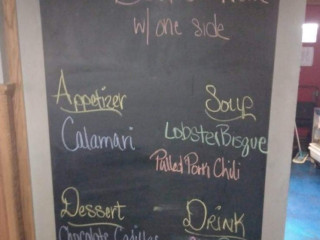 w/ one side
Appetizer
Calamari
Soup
Lobster Bisque
Pulled Pork Chili
Dessert
Chocolate
Drink